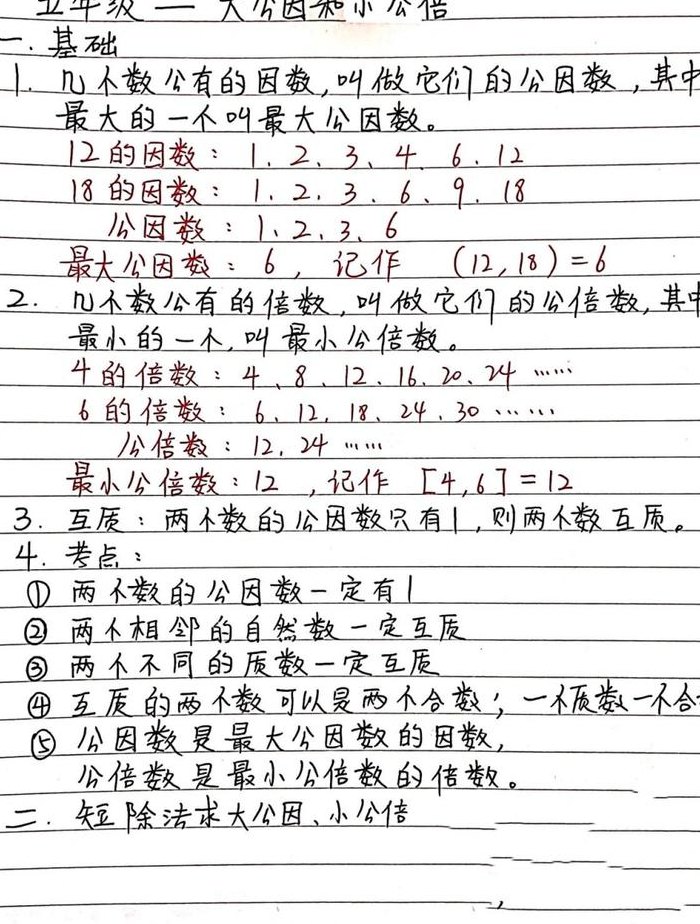 五年级 — 大公因和小公倍
一. 基础
1. 几个数公有的因数,叫做它们的公因数,其中
最大的一个叫最大公因数。
12的因数: 1、2、3、4、6、12
18的因数: 1、2、3、6、9、18
公因数: 1、2、3、6
最大公因数: 6, 记作 (12,18)=6
2. 几个数公有的倍数,叫做它们的公倍数,其中
最小的一个,叫最小公倍数。
4的倍数: 4、8、12、16、20、24 ……
6的倍数: 6、12、18、24、30 ……
公倍数: 12、24 ……
最小公倍数:12 ,记作 [4,6]=12
3. 互质: 两个数的公因数只有1,则两个数互质。
4. 考点:
① 两个数的公因数一定有1
② 两个相邻的自然数一定互质
③ 两个不同的质数一定互质
④ 互质的两个数可以是两个合数; 一个质数一个合
⑤ 公因数是最大公因数的因数,
公倍数是最小公倍数的倍数。
二. 短除法求大公因、小公倍